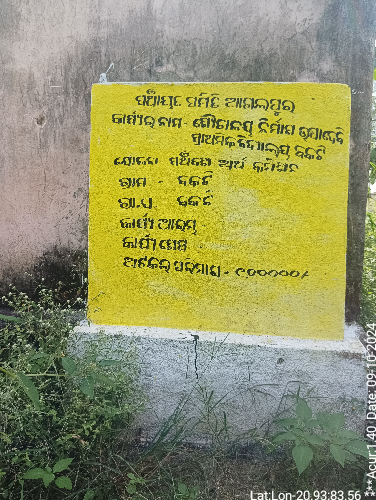 ପଞ୍ଚାୟତ ସମିତି ଆଗଲପୁର
କାର୍ଯ୍ୟର ନାମ - ଶୌଚାଳୟ ନିର୍ମାଣ
ପ୍ରାଥମିକ ବିଦ୍ୟାଳୟ ବକଟି
ଯୋଜନା ପଞ୍ଚଦଶ ଅର୍ଥ କମିଶନ
ଗ୍ରାମ - ବକଟି
ଗ୍ରା.ପ. ବକଟି
କାର୍ଯ୍ୟ ଆରମ୍ଭ
କାର୍ଯ୍ୟ ଶେଷ
ଅଟକଳ ପରିମାଣ - ୯୦୦୦୦୦/
Lat:Lon-20.93:83.56
***Acur:1.40 Date: 09-10-2024